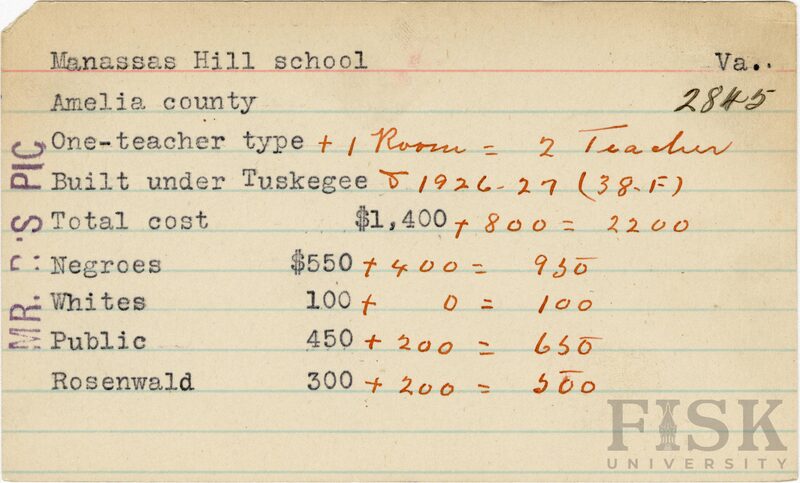 Manassas Hill school Va..
Amelia county 2845
One-teacher type + 1 Room = 2 Teacher
Built under Tuskegee & 1926-27 (38-F)
Total cost $1,400 + 800 = 2200
Negroes $550 + 400 = 950
Whites 100 + 0 = 100
Public 450 + 200 = 650
Rosenwald 300 + 200 = 500
MR. R.'S PIC
FISK
UNIVERSITY